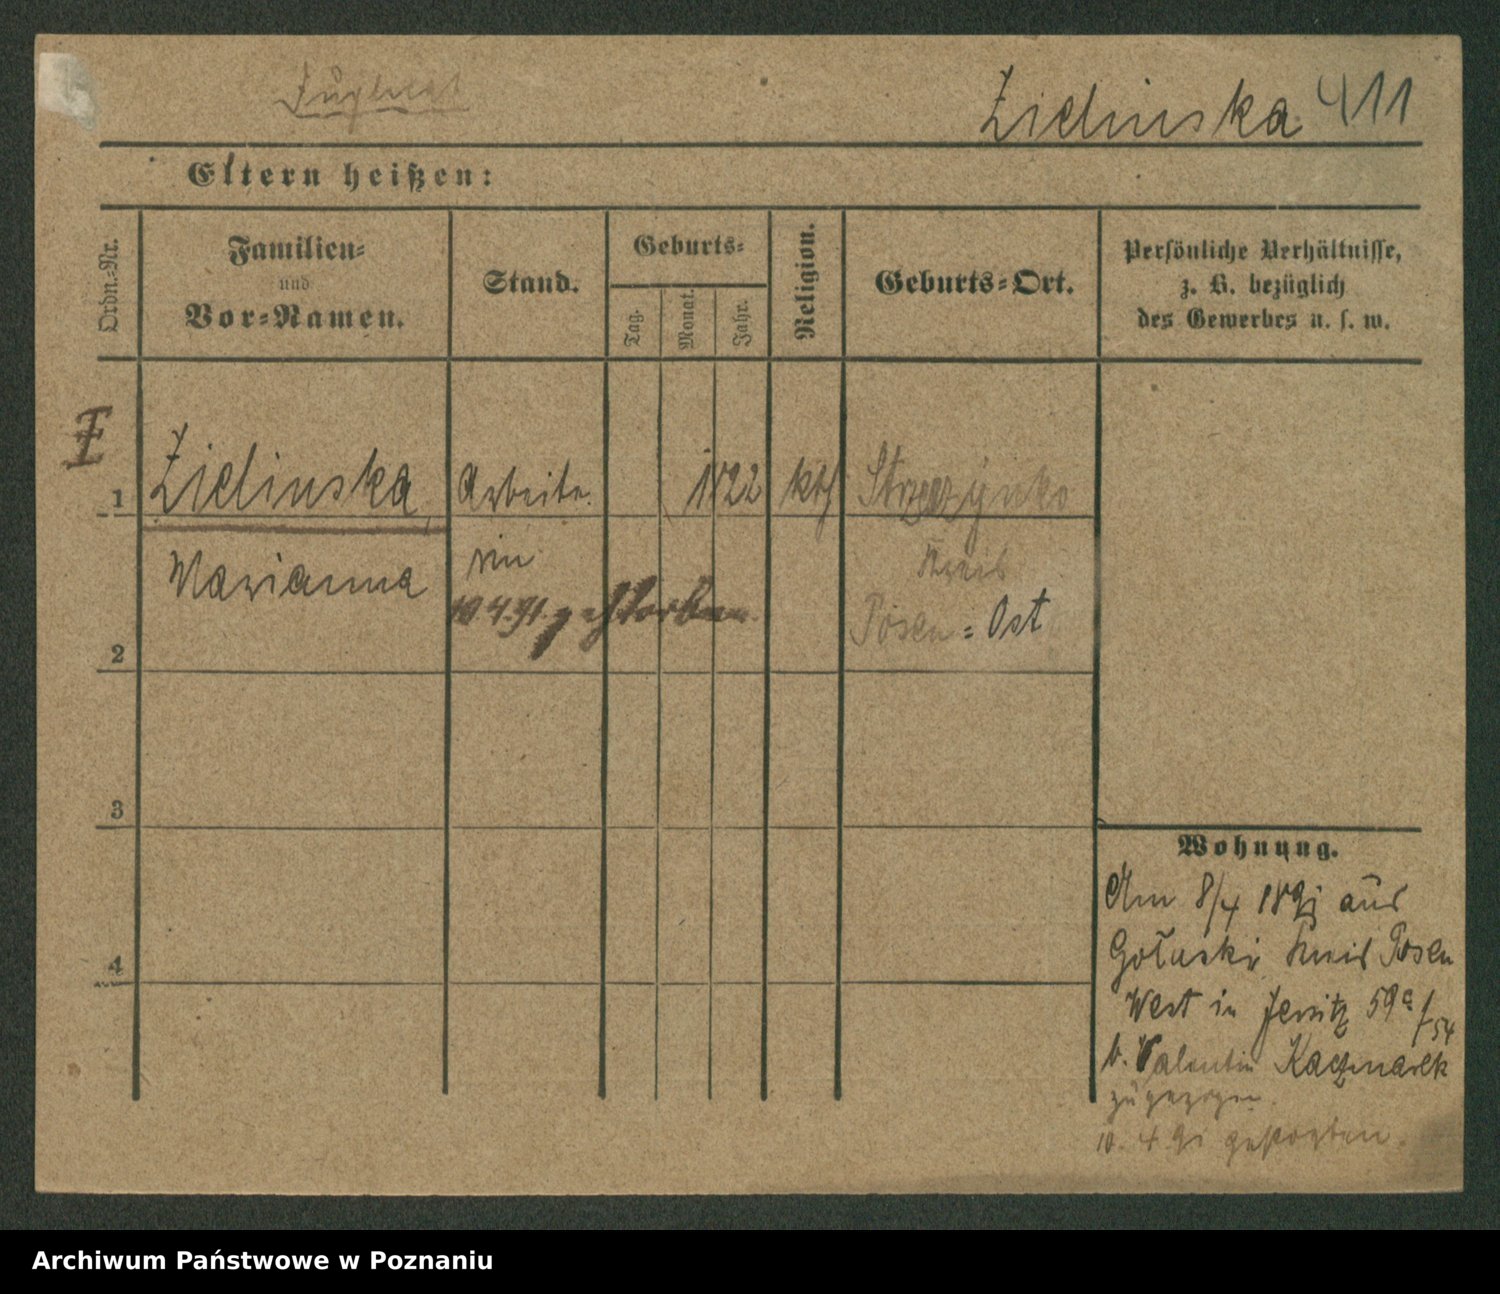 Zielinska 411
Eltern heißen:
Ordn.-Nr.
Familien-
und
Vor-Namen.
Stand.
Geburts-
Tag.
Monat.
Jahr.
Religion.
Geburts-Ort.
Persönliche Verhältnisse,
z. B. bezüglich
des Gewerbes u. s. w.
1 Zielinska Arbeite. 1822 kth Strzeszynko
Marianna rin Kreis
10.4.91. gestorben Posen-Ost
2
3
4
Wohnung.
Am 8/4 1891 aus
Gołuski Kreis Posen
West in Jersitz 59a/54
b. Valentin Kaczmarek
zugezogen.
10. 4. 91 gestorben.